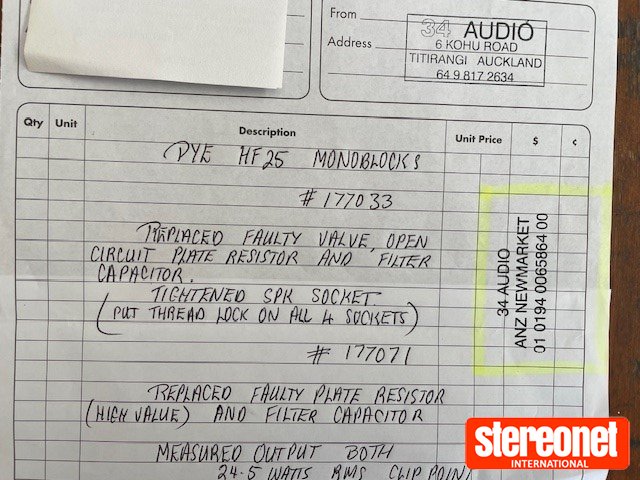 From
34 AUDIO
6 KOHU ROAD
TITIRANGI AUCKLAND
64 9 817 2634
Address
Qty Unit Description Unit Price $ ¢
PYE HF25 MONOBLOCKS
#177033
REPLACED FAULTY VALVE, OPEN
CIRCUIT PLATE RESISTOR AND FILTER
CAPACITOR.
TIGHTENED SPK SOCKET
(PUT THREAD LOCK ON ALL 4 SOCKETS)
#177071
REPLACED FAULTY PLATE RESISTOR
(HIGH VALUE) AND FILTER CAPACITOR
MEASURED OUTPUT BOTH
24.5 WATTS RMS CLIP POINT
34 AUDIO
ANZ NEWMARKET
01 0194 0065864 00
stereonet
INTERNATIONAL